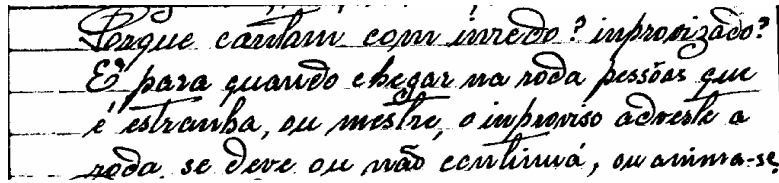 Porque cantam com inredo? inprovizado?
E' para quando chegar na roda pessôas que
é estranha, ou mestre, o inproviso adverte a
roda se deve ou não continuá, ou anima-se